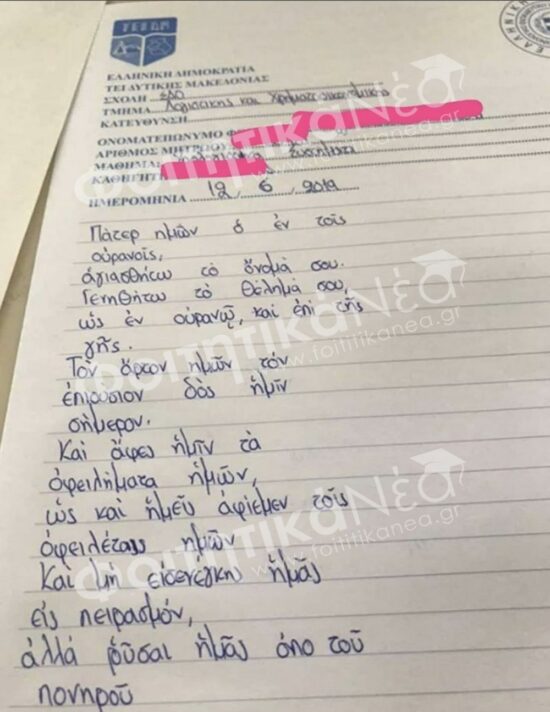 ΤΕΙΔΜ
ΕΛΛΗΝΙΚΗ ΔΗΜΟΚΡΑΤΙΑ
ΤΕΙ ΔΥΤΙΚΗΣ ΜΑΚΕΔΟΝΙΑΣ
ΣΧΟΛΗ ΣΔΟ
ΤΜΗΜΑ Λογιστικής και Χρηματοοικονομικής
ΚΑΤΕΥΘΥΝΣΗ
ΟΝΟΜΑΤΕΠΩΝΥΜΟ
ΑΡΙΘΜΟΣ ΜΗΤΡΩΟΥ
ΜΑΘΗΜΑ Συστήματα
ΚΑΘΗΓΗΤ
ΗΜΕΡΟΜΗΝΙΑ 12 6 2019
Πάτερ ημών ὁ ἐν τοῖς
οὐρανοῖς,
ἁγιασθήτω τὸ ὄνομά σου.
Γενηθήτω τὸ θέλημά σου,
ὡς ἐν οὐρανῷ, καὶ ἐπὶ τῆς
γῆς.
Τὸν ἄρτον ἡμῶν τὸν
ἐπιούσιον δὸς ἡμῖν
σήμερον.
Καὶ ἄφες ἡμῖν τὰ
ὀφειλήματα ἡμῶν,
ὡς καὶ ἡμεῖς ἀφίεμεν τοῖς
ὀφειλέταις ἡμῶν
Καὶ μὴ εἰσενέγκῃς ἡμᾶς
εἰς πειρασμόν,
ἀλλά ῥῦσαι ἡμᾶς ἀπο τοῦ
πονηροῦ
Φοιτητικά Νέα
www.foititikanea.gr